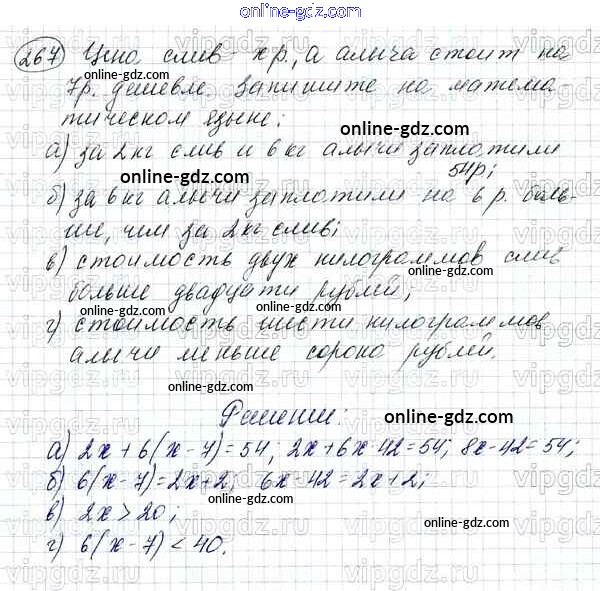 online-gdz.com
267) Цена слив x р., а алыча стоит на
7р. дешевле. Запишите на матема
online-gdz.com
тическом языке:
online-gdz.com
а) за 2 кг слив и 6 кг алычи заплатили
54р;
online-gdz.com
б) за 6 кг алычи заплатили на 6 р. боль-
ше, чем за 2 кг слив;
online-gdz.com
в) стоимость двух килограммов слив
online-gdz.com
больше двадцати рублей;
online-gdz.com
г) стоимость шести килограммов
алычи меньше сорока рублей.
online-gdz.com
online-gdz.com
Решение:
online-gdz.com
а) 2x + 6(x - 7) = 54; 2x + 6x - 42 = 54; 8x - 42 = 54;
online-gdz.com
б) 6(x - 7) = 2x + 2; 6x - 42 = 2x + 2;
online-gdz.com
в) 2x > 20;
online-gdz.com
г) 6(x - 7) < 40.
online-gdz.com
vipgdz.ru